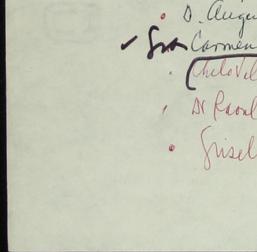 D. Augu
Sra Carmen
Chelo Vil
Dr Raoul
Grisel